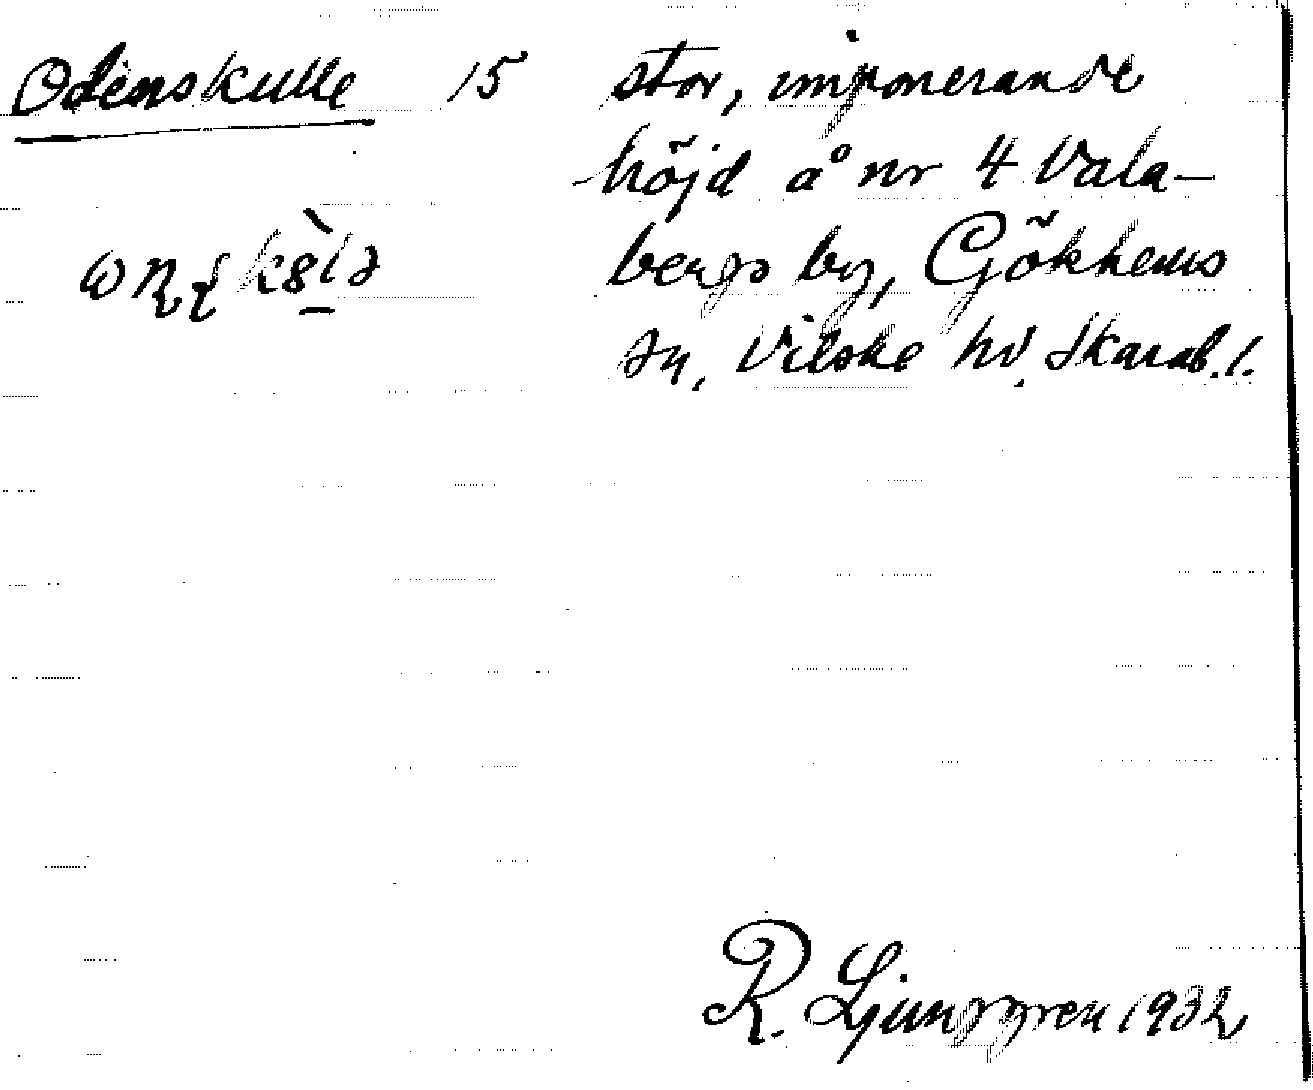 Odenskulle 15 stor, imponerande
höjd å nr 4 Vala-
bergs by, Gökhems
sn, Vilske hd. Skarab. l.
R. Ljunggren 1932